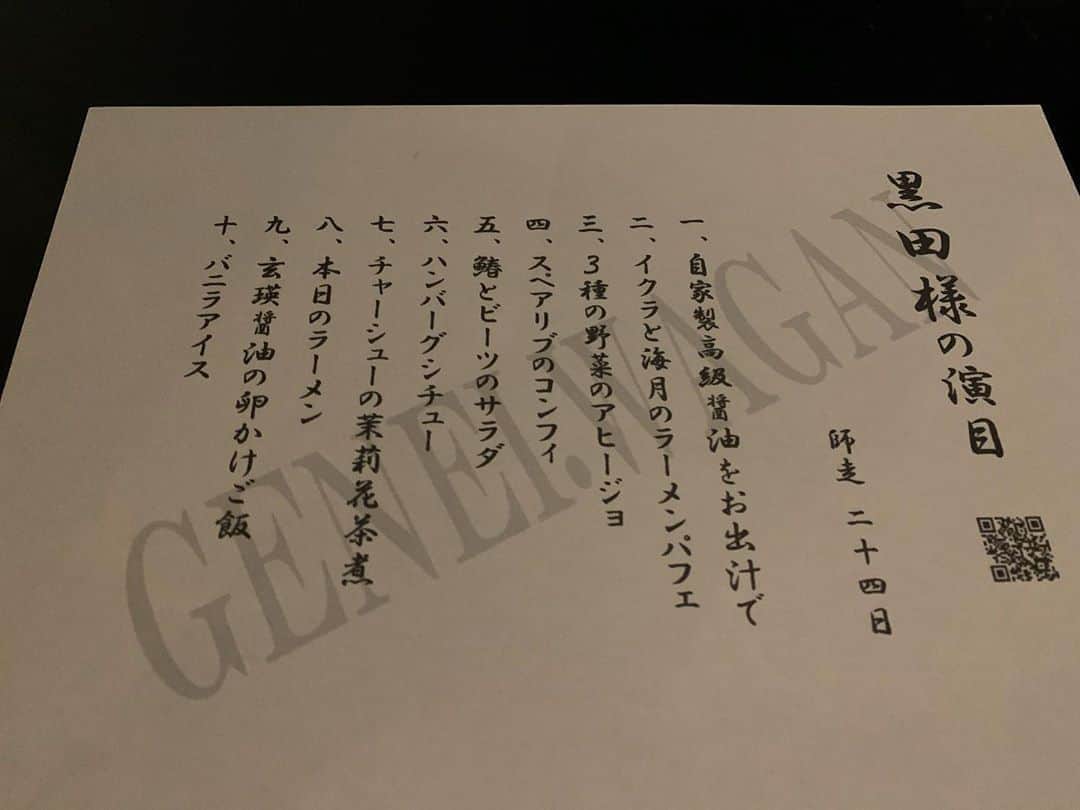 黒田様の演目
師走 二十四日
一、自家製高級醤油をお出汁で
二、イクラと海月のラーメンパフェ
三、3種の野菜のアヒージョ
四、スペアリブのコンフィ
五、鰆とビーツのサラダ
六、ハンバーグシチュー
七、チャーシューの茉莉花茶煮
八、本日のラーメン
九、玄瑛醤油の卵かけご飯
十、バニラアイス
GENEI.WAGAN